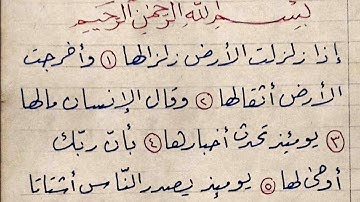 بسم الله الرحمن الرحيم
إذا زلزلت الأرض زلزالها ١ وأخرجت
الأرض أثقالها ٢ وقال الإنسان مالها
٣ يومئذ تحدث أخبارها ٤ بأن ربّك
أوحى لها ٥ يومئذ يصدر النّاس أشتاتا